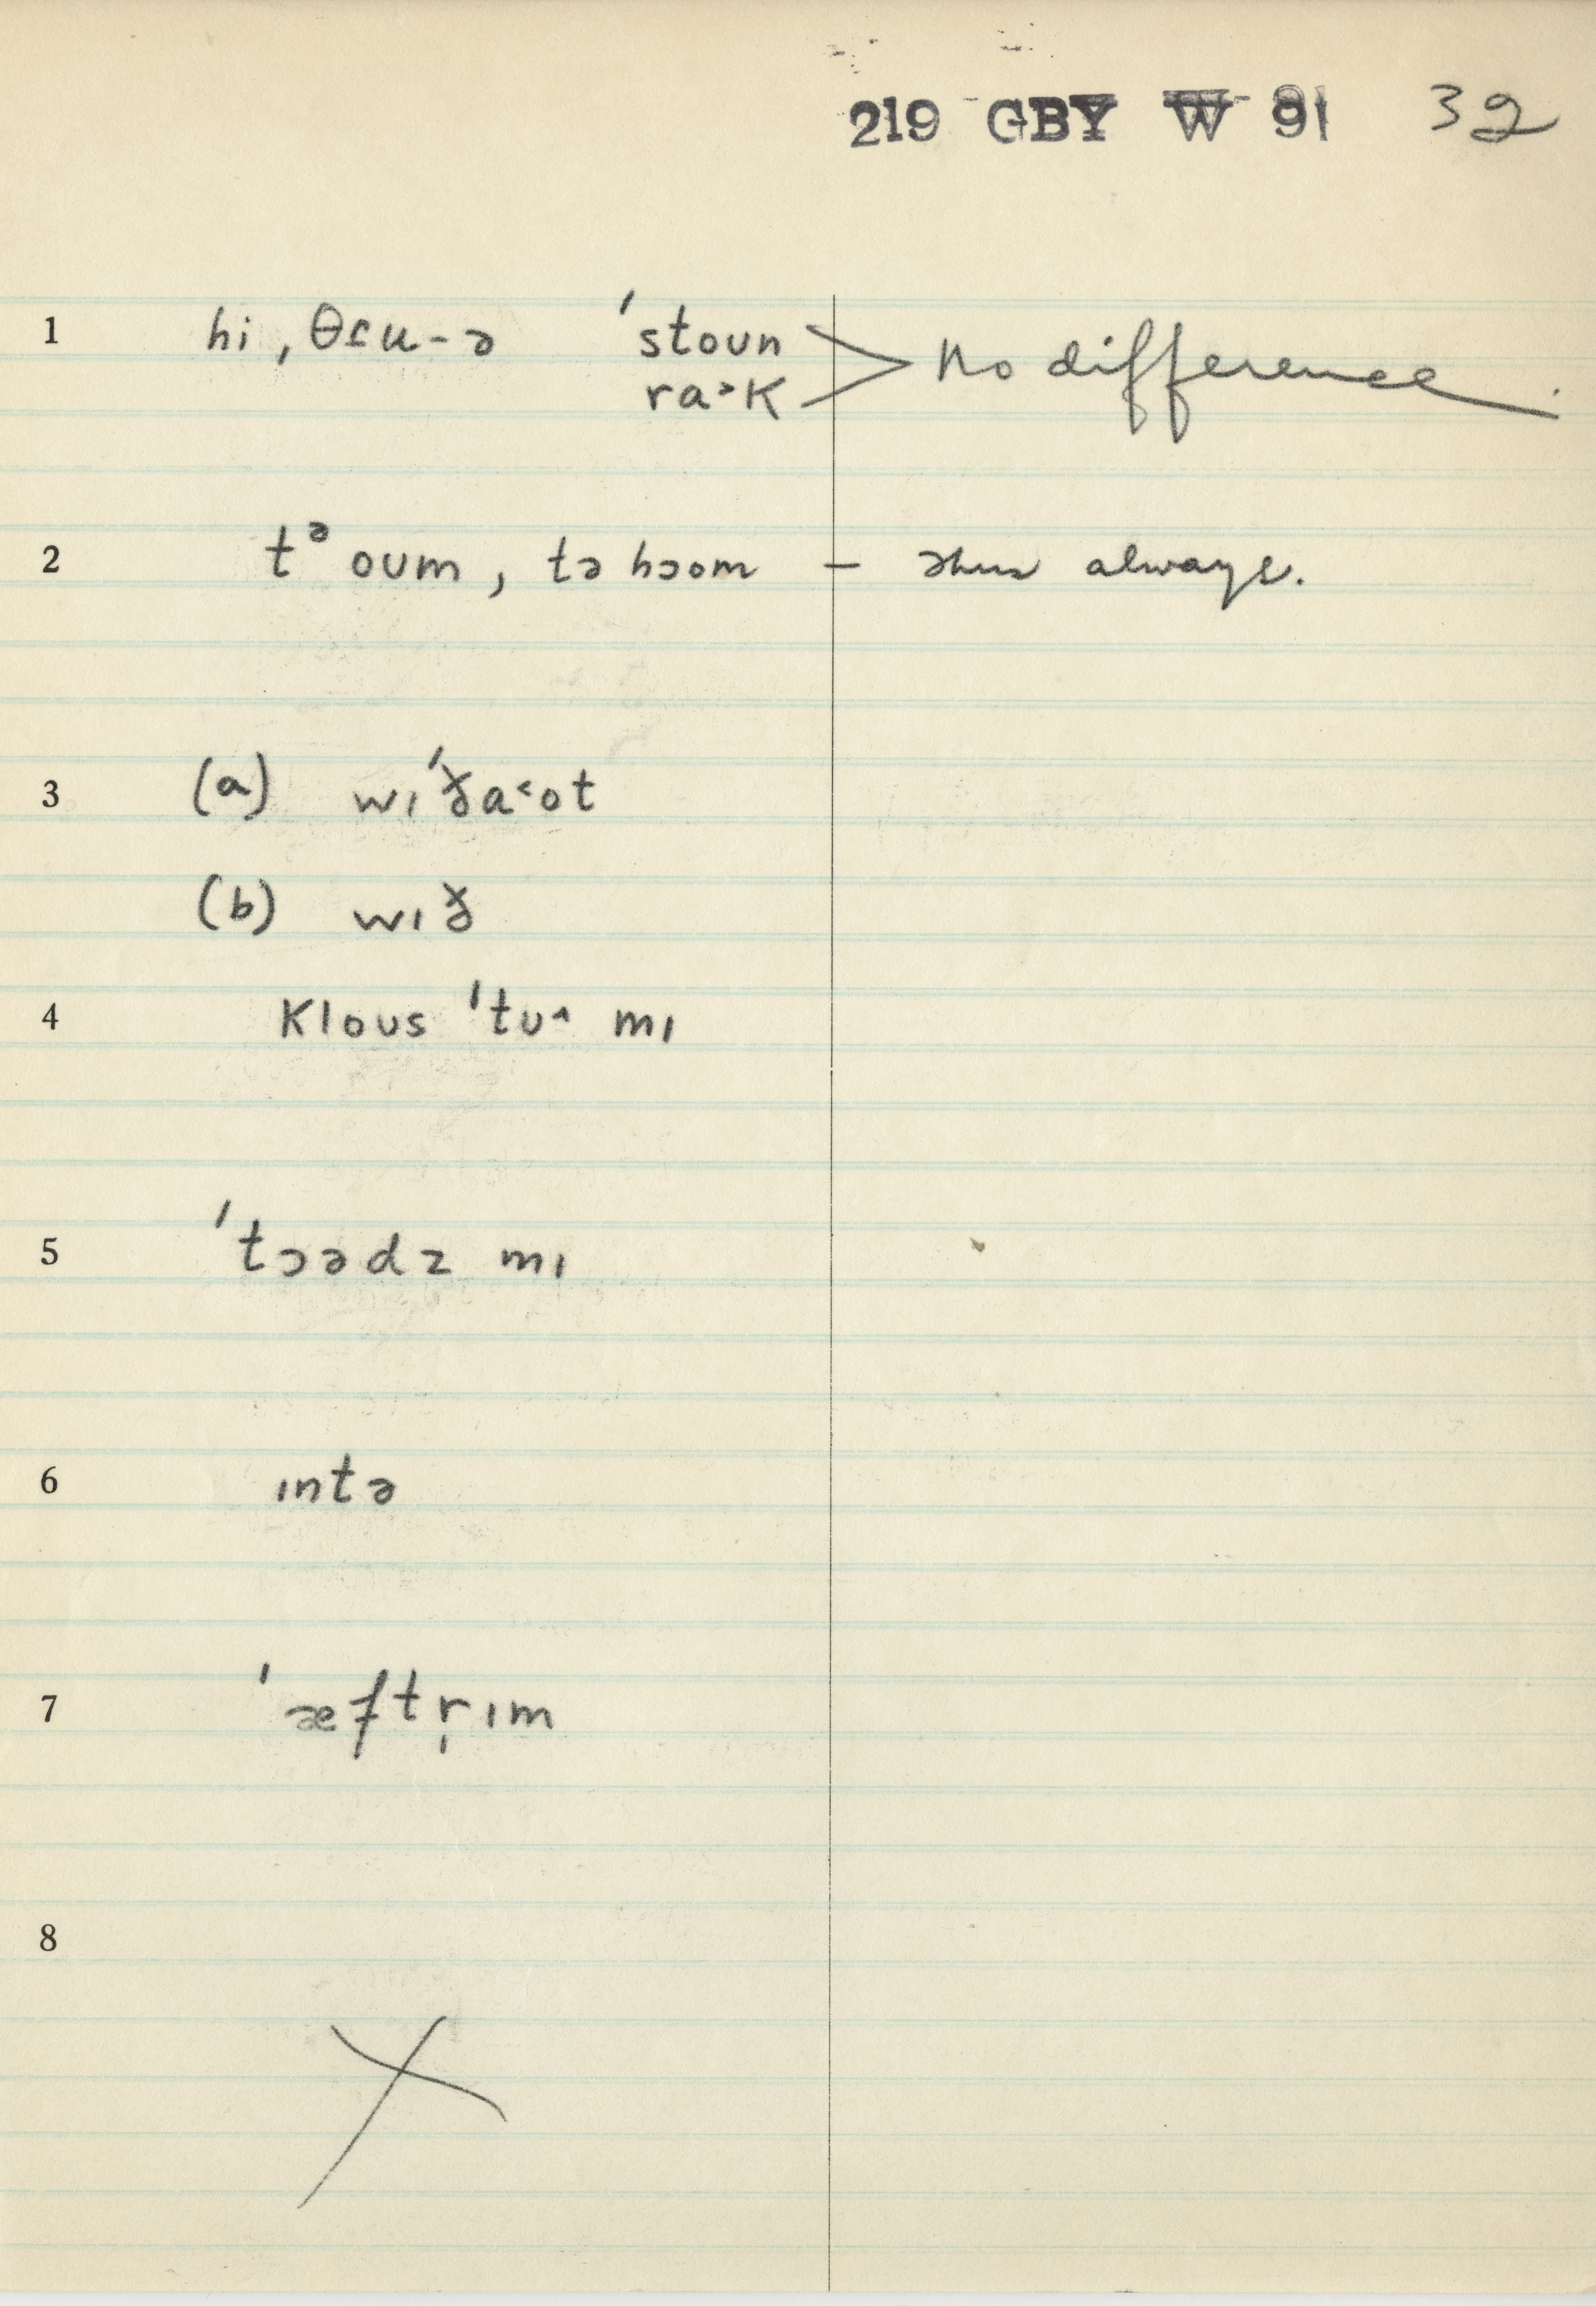 219 GBY W 91 32
1 hi, θɾu-ə ˈstoun No difference.
ra˃k
2 tᵊ oum, tə hɔom – thus always.
3 (a) wɪˈða˂ot
(b) wɪð
4 klous ˈtu˄ mɪ
5 ˈtɔədz mɪ
6 ɪntə
7 ˈæftr̩ɪm
8